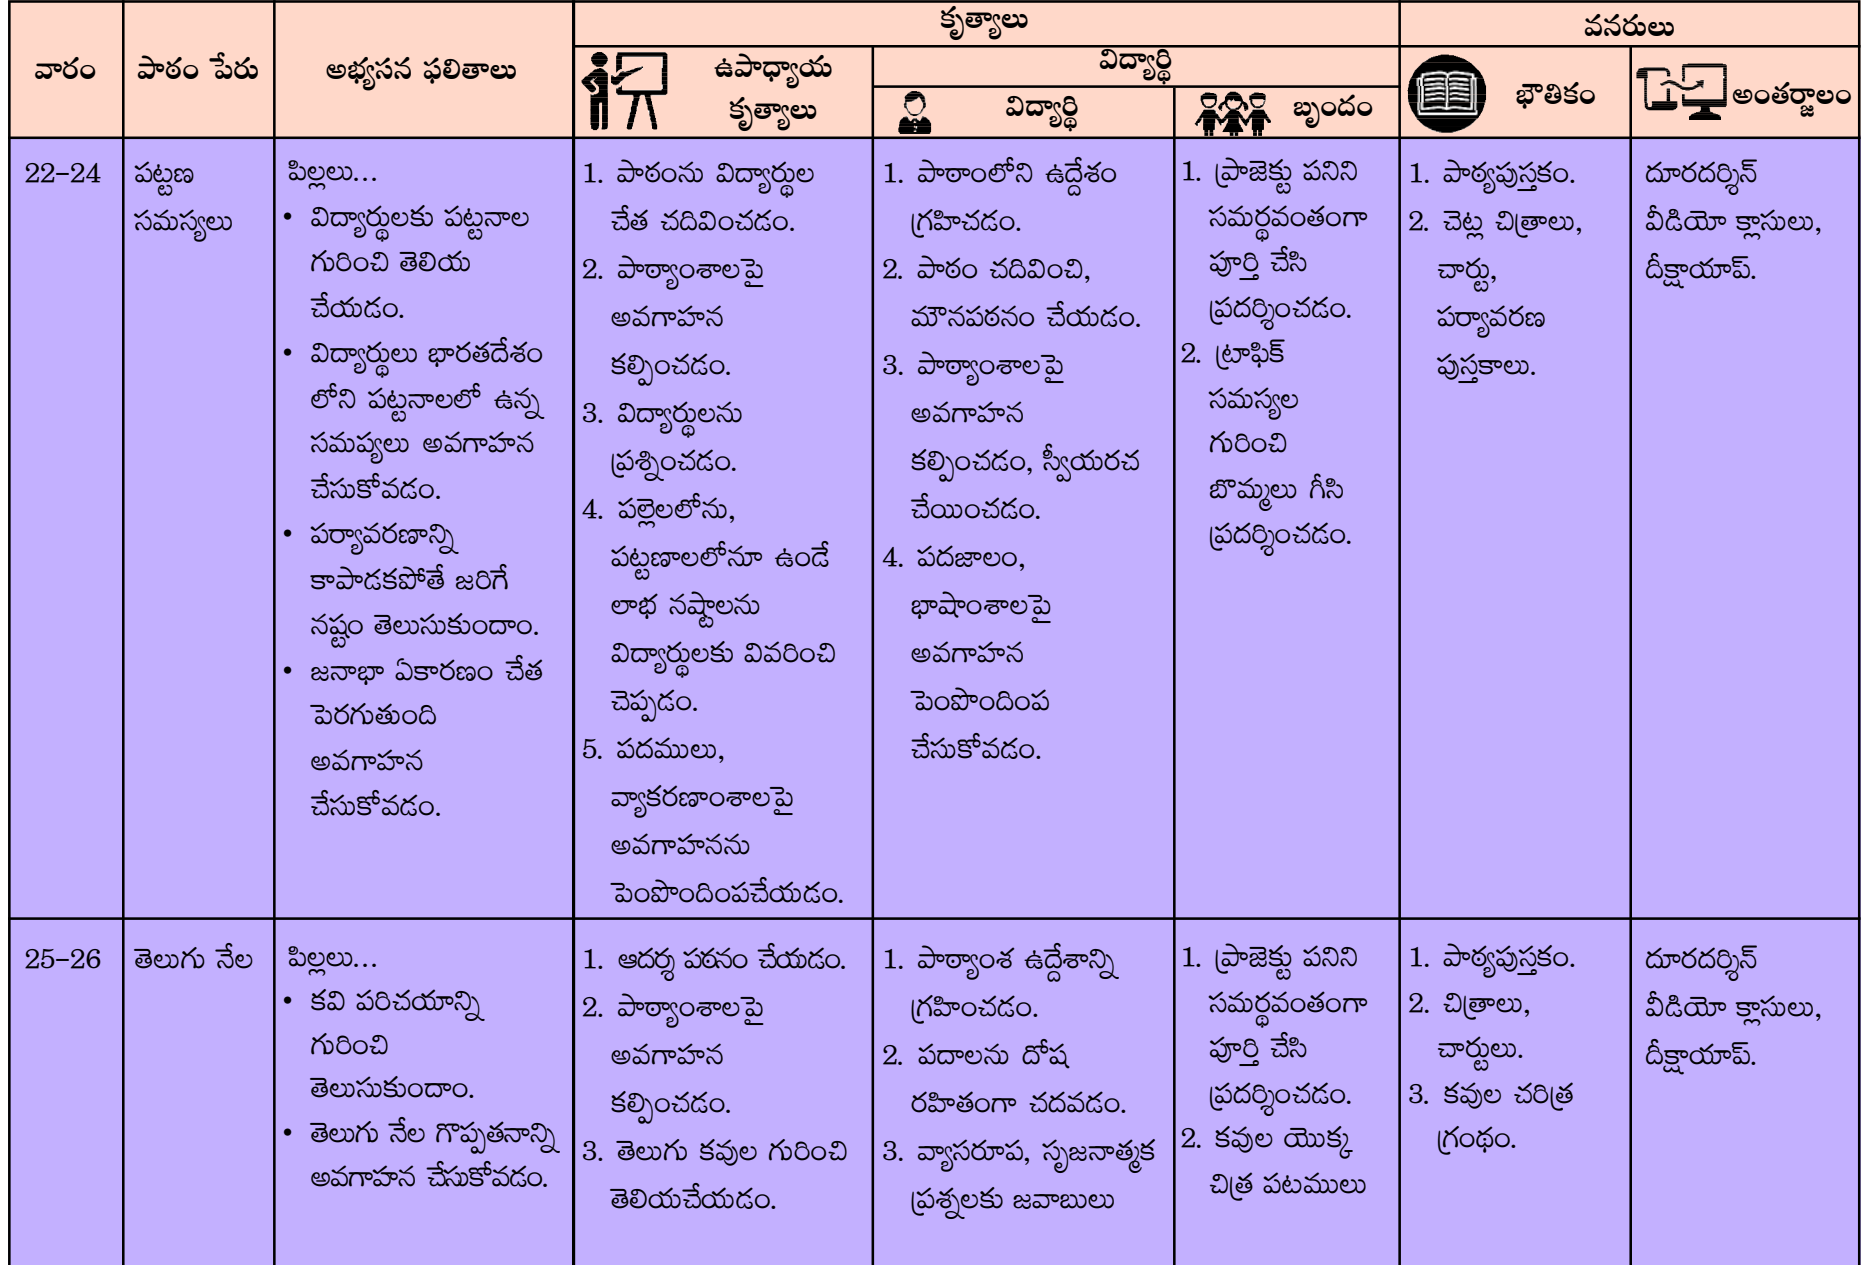 వారం
పాఠం పేరు
అభ్యసన ఫలితాలు
కృత్యాలు
వనరులు
ఉపాధ్యాయ
కృత్యాలు
విద్యార్థి
విద్యార్థి
బృందం
భౌతికం
అంతర్జాలం
22-24
పట్టణ
సమస్యలు
పిల్లలు...
• విద్యార్థులకు పట్టనాల
గురించి తెలియ
చేయడం.
• విద్యార్థులు భారతదేశం
లోని పట్టనాలలో ఉన్న
సమప్యలు అవగాహన
చేసుకోవడం.
• పర్యావరణాన్ని
కాపాడకపోతే జరిగే
నష్టం తెలుసుకుందాం.
• జనాభా ఏకారణం చేత
పెరగుతుంది
అవగాహన
చేసుకోవడం.
1. పాఠంను విద్యార్థుల
చేత చదివించడం.
2. పాఠ్యాంశాలపై
అవగాహన
కల్పించడం.
3. విద్యార్థులను
ప్రశ్నించడం.
4. పల్లెలలోను,
పట్టణాలలోనూ ఉండే
లాభ నష్టాలను
విద్యార్థులకు వివరించి
చెప్పడం.
5. పదములు,
వ్యాకరణాంశాలపై
అవగాహనను
పెంపొందింపచేయడం.
1. పాఠాంలోని ఉద్దేశం
గ్రహిచడం.
2. పాఠం చదివించి,
మౌనపఠనం చేయడం.
3. పాఠ్యాంశాలపై
అవగాహన
కల్పించడం, స్వీయరచ
చేయించడం.
4. పదజాలం,
భాషాంశాలపై
అవగాహన
పెంపొందింప
చేసుకోవడం.
1. ప్రాజెక్టు పనిని
సమర్థవంతంగా
పూర్తి చేసి
ప్రదర్శించడం.
2. ట్రాఫిక్
సమస్యల
గురించి
బొమ్మలు గీసి
ప్రదర్శించడం.
1. పాఠ్యపుస్తకం.
2. చెట్ల చిత్రాలు,
చార్టు,
పర్యావరణ
పుస్తకాలు.
దూరదర్శిన్
వీడియో క్లాసులు,
దీక్షాయాప్.
25-26
తెలుగు నేల
పిల్లలు...
• కవి పరిచయాన్ని
గురించి
తెలుసుకుందాం.
• తెలుగు నేల గొప్పతనాన్ని
అవగాహన చేసుకోవడం.
1. ఆదర్శ పఠనం చేయడం.
2. పాఠ్యాంశాలపై
అవగాహన
కల్పించడం.
3. తెలుగు కవుల గురించి
తెలియచేయడం.
1. పాఠ్యాంశ ఉద్దేశాన్ని
గ్రహించడం.
2. పదాలను దోష
రహితంగా చదవడం.
3. వ్యాసరూప, సృజనాత్మక
ప్రశ్నలకు జవాబులు
1. ప్రాజెక్టు పనిని
సమర్థవంతంగా
పూర్తి చేసి
ప్రదర్శించడం.
2. కవుల యొక్క
చిత్ర పటములు
1. పాఠ్యపుస్తకం.
2. చిత్రాలు,
చార్టులు.
3. కవుల చరిత్ర
గ్రంథం.
దూరదర్శిన్
వీడియో క్లాసులు,
దీక్షాయాప్.